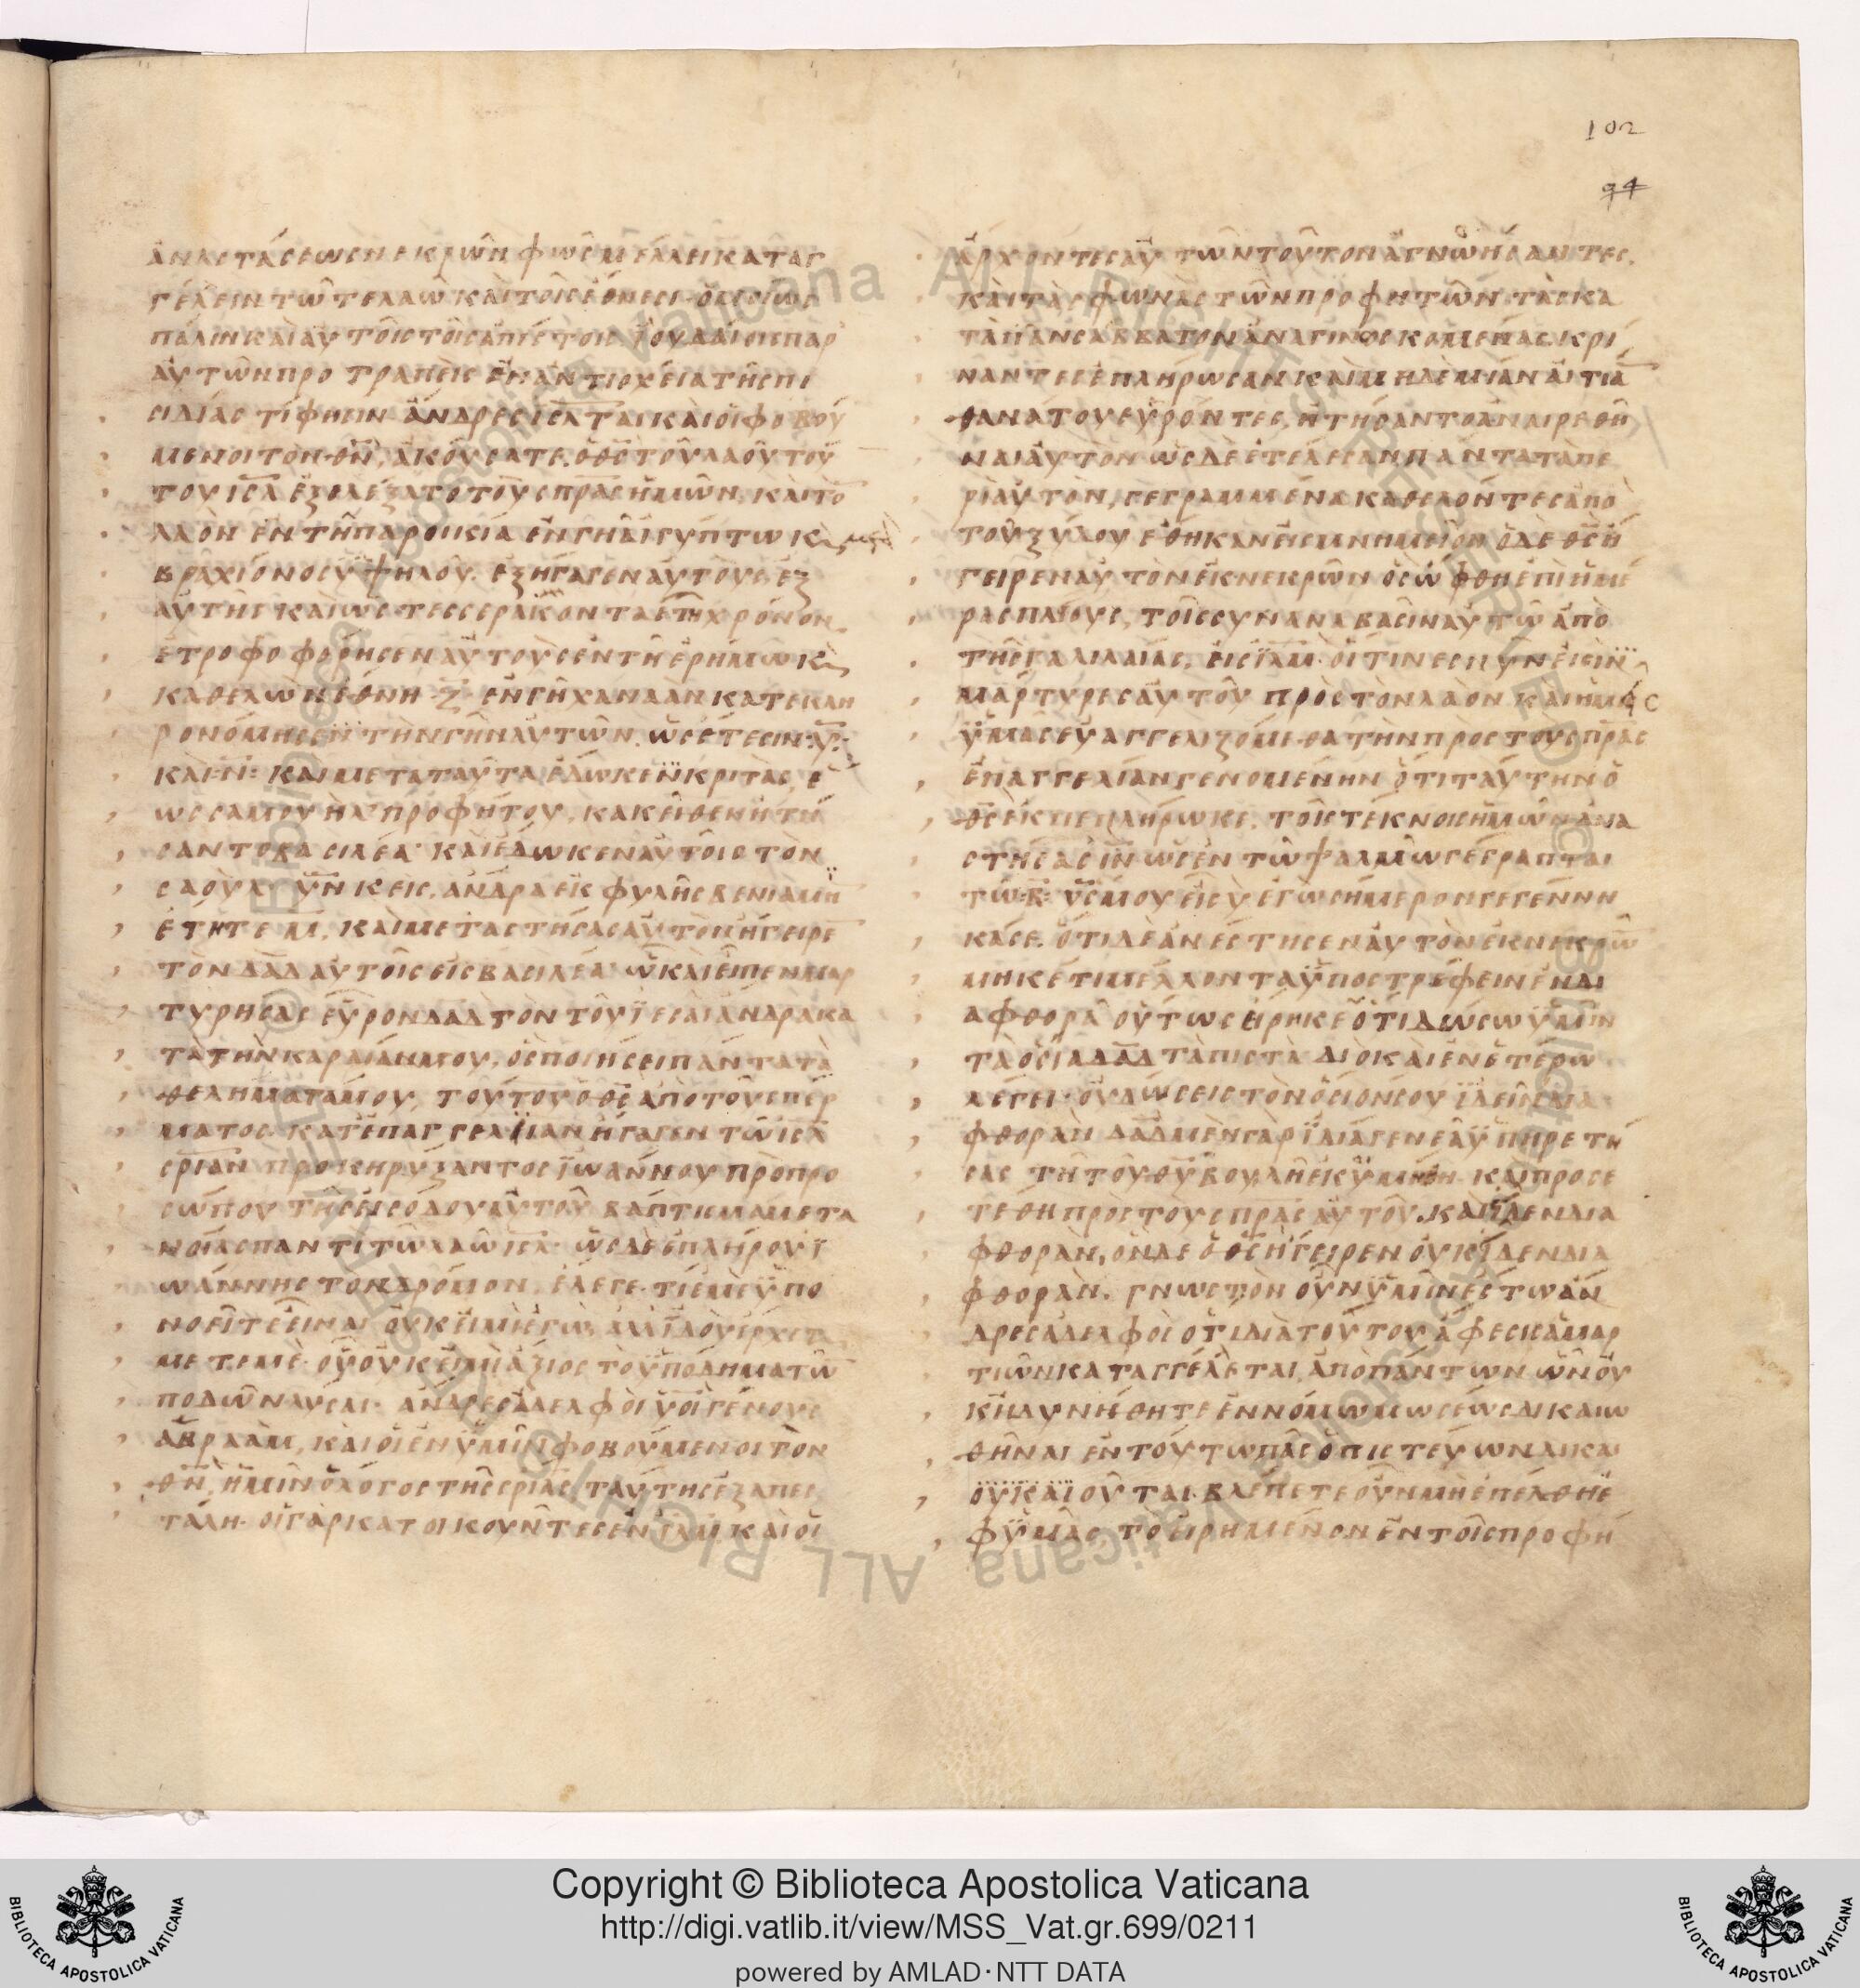 102
94
ἀναστάσεως νεκρῶν φῶς μέλλει καταγ
γέλλειν τῶ τε λαῶ καὶ τοῖς ἔθνεσι ὃς ὁμοίως
πάλιν καὶ αὐτοῖς τοῖς ἀπίστοις ϊουδαίοις παρ
αὐτῶν προτραπεὶς ἐν ἀντιοχεία τῆς πι
σιδίας τί φησιν ἄνδρες ιηλται καὶ οἱ φοβού
μενοι τὸν θν, ἀκούσατε. ὁ θς τοῦ λαοῦ τού
του ιηλ ἐξελέξατο τοὺς πρας ἡμῶν, καὶ τὸ
λαὸν ἐν τῆ παροικία ἐν γῆ αἰγύπτω κ μετ
βραχίονος ὑψηλοῦ. ἐξήγαγεν αὐτοὺς ἐξ
αὐτῆς καὶ ὡς τεσσερακονταέτη χρόνον
ἐτροφοφόρησεν αὐτοὺς ἐν τῆ ἐρήμω κ
καθελὼν ἔθνη ζ ἐν γῆ χαναὰν κατεκλη
ρονόμησεν τὴν γῆν αὐτῶν. ὡς ἔτεσιν υ
καὶ ν: καὶ μετὰ ταῦτα ἔδωκεν κριτὰς, ἕ
ως σαμουὴλ προφήτου, κἀκεῖθεν ἠτή
σαντο βασιλέα· καὶ ἔδωκεν αὐτοῖς τὸν
σαοὺλ υν κεὶς, ἄνδρα ἐκ φυλῆς βενιαμὴ
ἔτη τεμ, καὶ μεταστήσας αὐτὸν ἤγειρε
τὸν δαδ αὐτοῖς εἰς βασιλέα· ᾧ καὶ εἶπεν μαρ
τυρήσας εὗρον δαδ τὸν τοῦ ϊεσαὶ ἄνδρα κα
τὰ τὴν καρδίαν μου, ὃς ποιήσει πάντα τὰ
θελήματά μου, τούτου ὁ θς ἀπὸ τοῦ σπέρ
ματος κατ ἐπαγγελίαν ἤγαγεν τῶ ιηλ
σριαν προκηρύξαντος ϊωάννου πρὸ προ
σώπου τῆς εἰσόδου αὐτοῦ βάπτισμα μετα
νοίας παντὶ τῶ λαῶ ιηλ· ὡς δὲ ἐπλήρου ϊ
ωάννης τὸν δρόμον, ἔλεγε· τί ἐμὲ ὑπο
νοεῖτε εἶναι οὐκ εἰμὶ ἐγὼ, ἀλλ ϊδοὺ ἔρχεται
μετ ἐμὲ· οὗ οὐκ εἰμὶ ἄξιος τὸ ὑπόδημα τῶ
ποδῶν λῦσαι· ἄνδρες ἀδελφοὶ υἱοὶ γένους
ἀβραὰμ, καὶ οἱ ἐν ὑμῖν φοβούμενοι τὸν
θν, ἡμῖν ὁ λόγος τῆς σρίας ταύτης ἐξαπεσ
τάλη· οἱ γὰρ κατοικοῦντες ἐν ιλημ καὶ οἱ
ἄρχοντες αὐτῶν τοῦτον ἀγνοήσαντες,
καὶ τὰς φωνὰς τῶν προφητῶν τὰς κα
τὰ πᾶν σάββατον ἀναγινωσκομένας κρί
ναντες ἐπλήρωσαν καὶ μηδεμίαν αἰτία
θανάτου εὑρόντες, ἠτήσαντο ἀναιρεθῆ
ναι αὐτὸν ὡς δὲ ἐτέλεσαν πάντα τὰ πε
ρὶ αὐτὸν, γεγραμμένα καθελόντες ἀπὸ
τοῦ ξύλου ἔθηκαν εἰς μνημεῖον ὁ δὲ θς ἤ
γειρεν αὐτὸν ἐκ νεκρῶν ὃς ὤφθη ἐπὶ ἡμέ
ρας πλίους, τοῖς συναναβᾶσιν αὐτῶ ἀπὸ
τῆς γαλιλαίας, εἰς ϊλημ· οἵτινες νῦν εἰσὶν
μάρτυρες αὐτοῦ πρὸς τὸν λαὸν καὶ ἡμεῖς
ὑμᾶς εὐαγγελιζόμεθα τὴν πρὸς τοὺς πρας
ἐπαγγελίαν γενομένην ὅτι ταύτην ὁ
θς ἐκπεπλήρωκε, τοῖς τέκνοις ἡμῶν ἀνα
στήσας ιν ὡς ἐν τῶ ψαλμῶ γέγραπται
τῶ β υς μου εἶ σὺ ἐγὼ σήμερον γεγέννη
κά σε. ὅτι δὲ ἀνέστησεν αὐτὸν ἐκ νεκρῶ
μηκέτι μέλλοντα ὑποστρέφειν εἰς δι
αφθορὰ οὕτως εἴρηκε ὅτι δώσω ὑμῖν
τὰ ὅσια δαδ τὰ πιστὰ διὸ καὶ ἐν ἑτέρω
λέγει· οὐ δώσεις τὸν ὅσιόν σου ϊδεῖν δια
φθορὰν δαδ μὲν γὰρ ϊδία γενεᾶ ὑπηρετή
σας τῆ τοῦ θυ βουλῆ ἐκοιμήθη καὶ προσε
τέθη πρὸς τοὺς πρας αὐτοῦ. καὶ ϊδεν δια
φθορὰν, ὃν δὲ ὁ θς ἤγειρεν οὐκ ϊδεν δια
φθορὰν, γνωστὸν οὖν ὑμῖν ἔστω ἄν
δρες ἀδελφοὶ ὅτι διὰ τούτου ἄφεσις ἁμαρ
τιῶν καταγγέλλεται, ἀπὸ πάντων ὧν οὐ
κ ἠδυνήθητε ἐν νόμω μωσέως δικαιω
θῆναι ἐν τούτω πᾶς ὁ πιστεύων δικαι
οῦται βλέπετε οὖν μὴ ἐπέλθη ἐ
φ ὑμᾶς, τὸ εἰρημένον ἐν τοῖς προφή
Copyright © Biblioteca Apostolica Vaticana
http://digi.vatlib.it/view/MSS_Vat.gr.699/0211
powered by AMLAD·NTT DATA
BIBLIOTECA APOSTOLICA VATICANA
BIBLIOTECA APOSTOLICA VATICANA